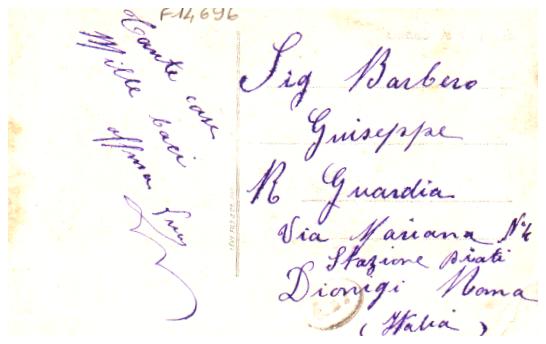 F14696
Tante cose
Mille baci
affma Lucy
Sig Barbero
Guiseppe
R Guardia
Via Mariana N°4
Stazione Prati
Dionigi Roma
(Italia)